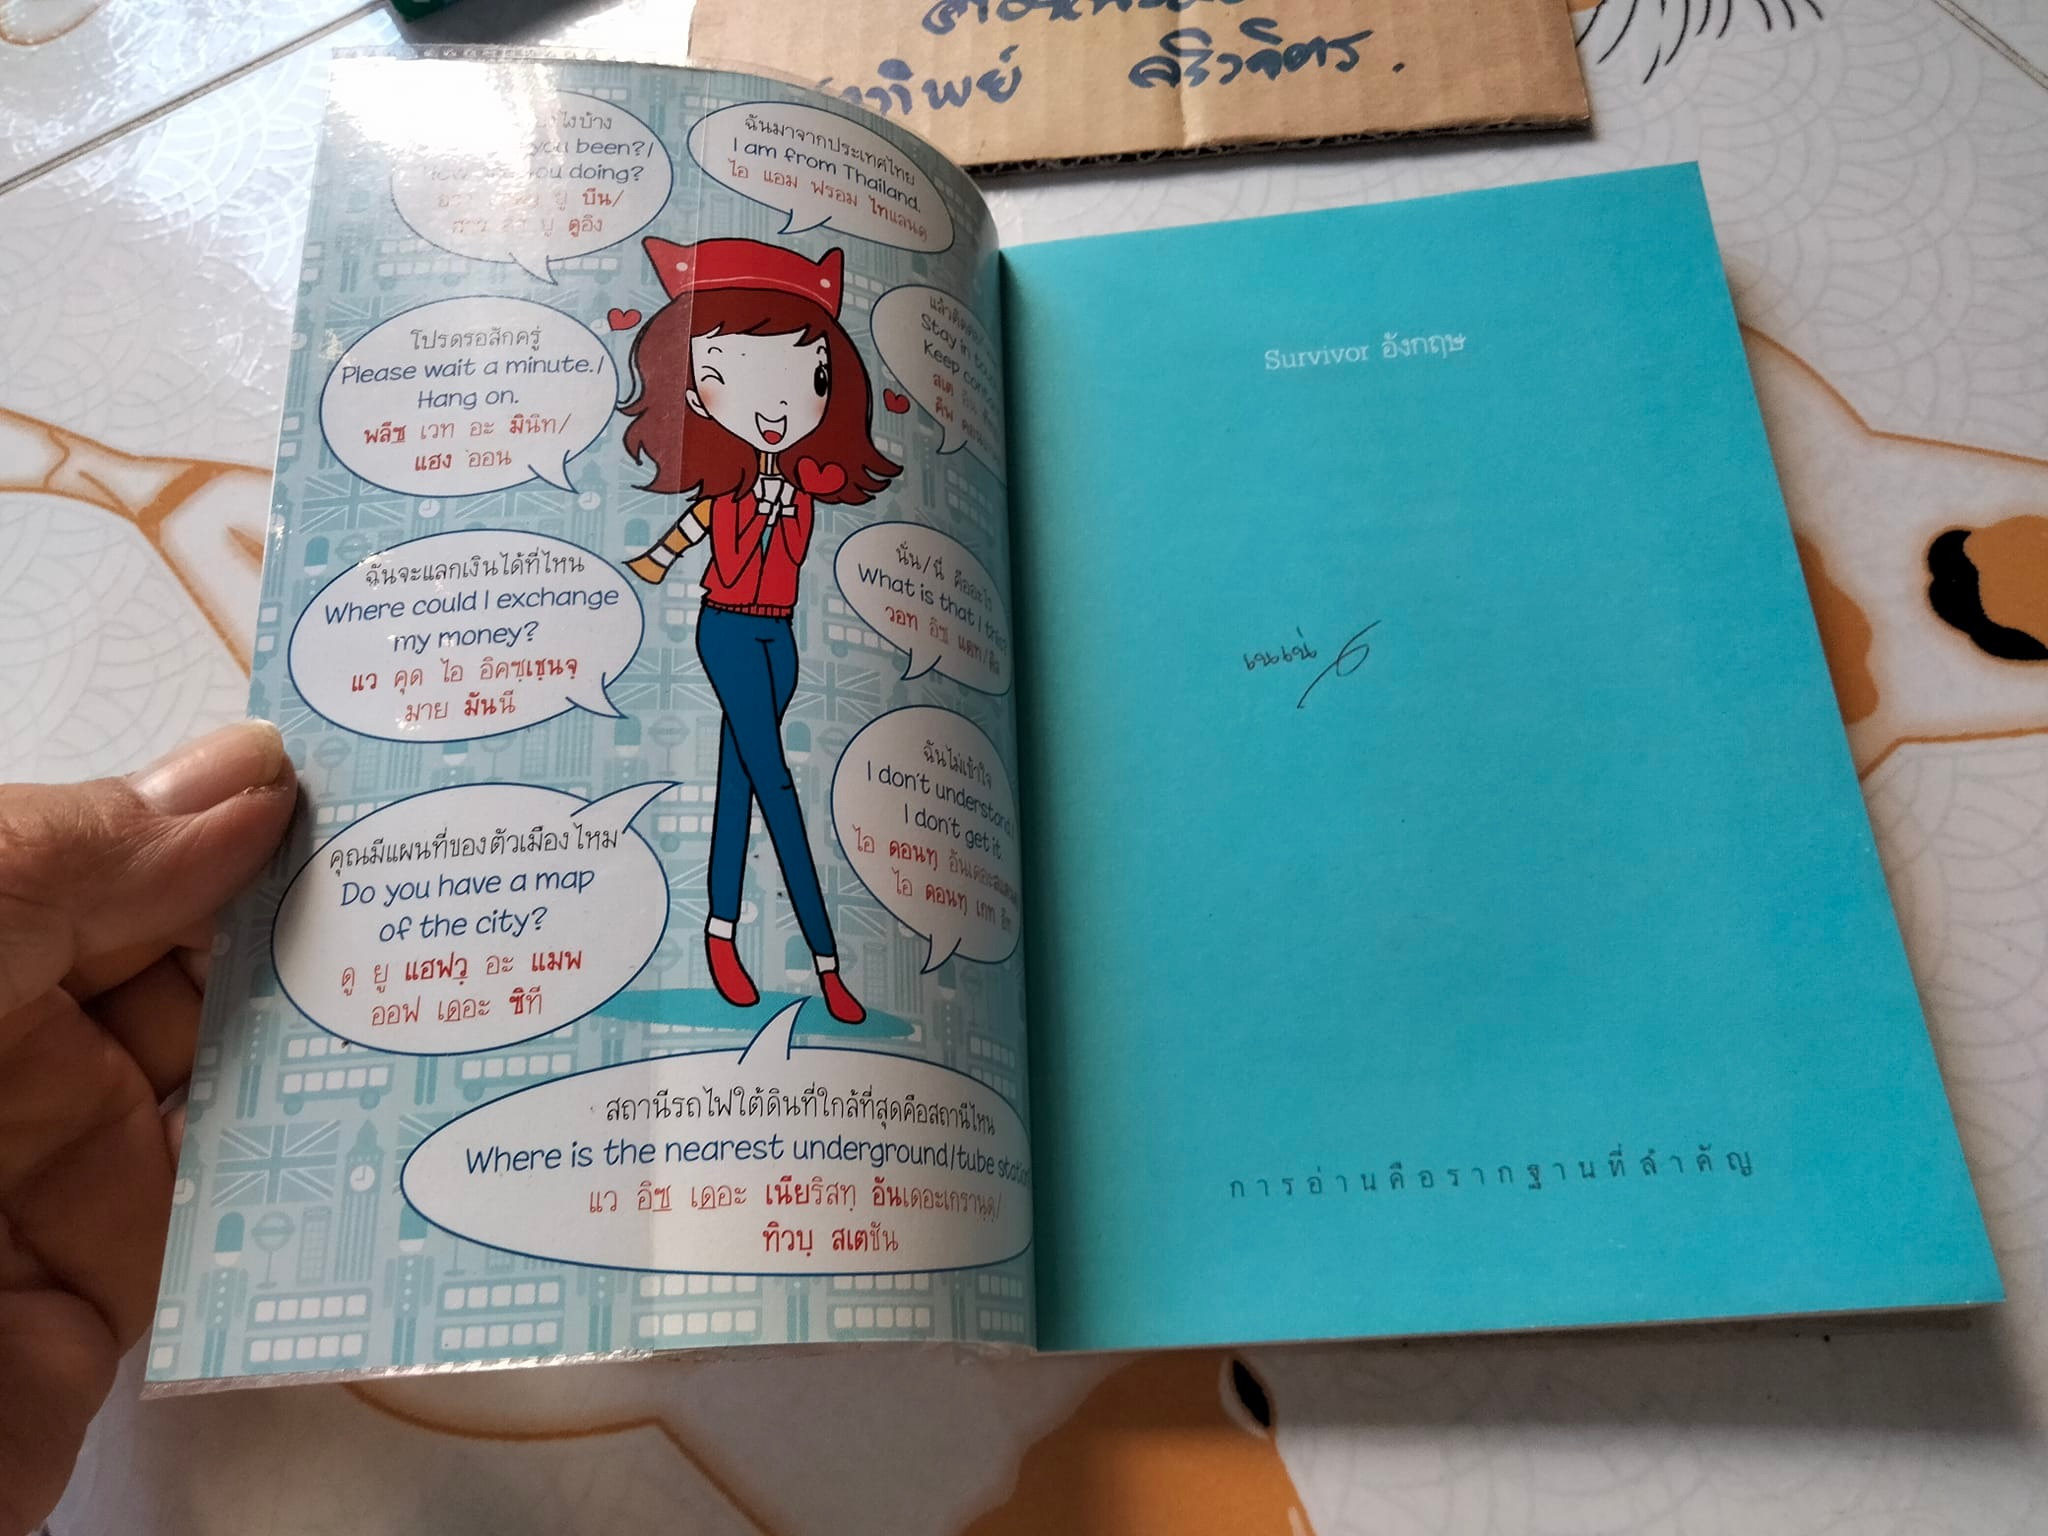 ทิพย์ ศริวจิตร.
ไงบ้าง
you been?/
How are you doing?
ยู บีน/
ยู ดูอิง
ฉันมาจากประเทศไทย
I am from Thailand.
ไอ แอม ฟรอม ไทแลนดฺ
โปรดรอสักครู่
Please wait a minute./
Hang on.
พลีซ เวท อะ มินิท/
แฮง ออน
Stay in
Keep
ฉันจะแลกเงินได้ที่ไหน
Where could I exchange
my money?
แว คุด ไอ อิคซฺเชฺนจฺ
มาย มันนี
นั่น/นี่ คืออะไร
What is that / this?
วอท อิซ แดท/
ฉันไม่เข้าใจ
I don't understand.
I don't get it.
ไอ ดอนทฺ
ไอ ดอนทฺ เกท อิท
คุณมีแผนที่ของตัวเมืองไหม
Do you have a map
of the city?
ดู ยู แฮฟวฺ อะ แมพ
ออฟ เดอะ ซิที
สถานีรถไฟใต้ดินที่ใกล้ที่สุดคือสถานีไหน
Where is the nearest underground/tube station
แว อิซ เดอะ เนียริสทฺ อันเดอะเกรานฺดฺ/
ทิวบฺ สเตชัน
Survivor อังกฤษ
เนเน่
การอ่านคือรากฐานที่สำคัญ